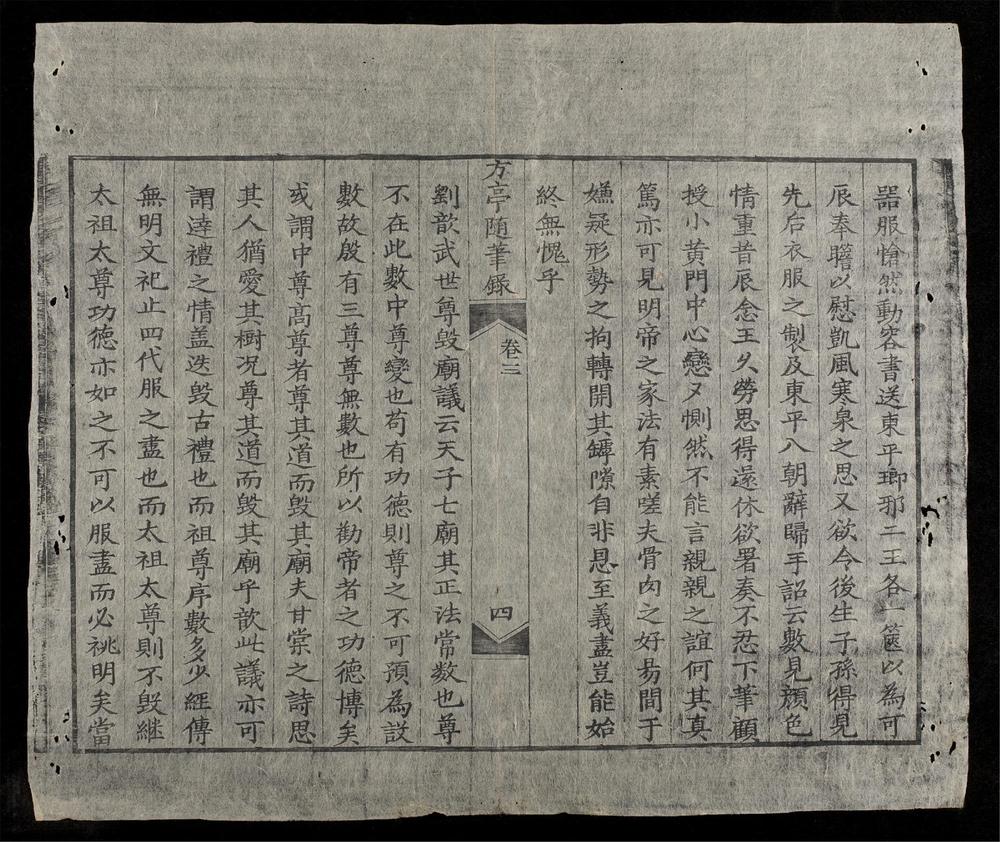 器服愴然動容書送東平瑯邪二王各一篋以為可
辰奉瞻以慰凱風寒泉之思又欲令後生子孫得見
先后衣服之製及東平八朝辭歸手詔云數見顏色
情重昔辰念王久勞思得還休欲署奏不忍下筆顧
授小黃門中心戀又惻然不能言親親之誼何其真
篤亦可見明帝之家法有素嗟夫骨肉之好易間于
嫌疑形勢之拘轉開其罅隙自非恩至義盡豈能始
終無愧乎
方亭隨筆錄
卷三
四
劉歆武世尊毀廟議云天子七廟其正法常数也尊
不在此數中尊變也苟有功德則尊之不可預為設
數故殷有三尊尊無數也所以勸帝者之功德博矣
或謂中尊高尊者尊其道而毀其廟夫甘棠之詩思
其人猶愛其樹况尊其道而毀其廟乎歆此議亦可
謂達禮之情盖迭毀古禮也而祖尊序數多少經傳
無明文祀止四代服之盡也而太祖太尊則不毀継
太祖太尊功德亦如之不可以服盡而必祧明矣當